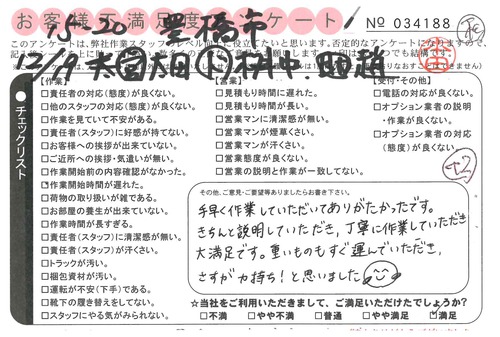 お客様不満足度アンケート
15-20 豊橋市
No 034188
このアンケートは、弊社作業スタッフのレベル向上に役立てたいと思います。否定的なアンケートになりますので、
12/19
チェックリスト
【作業】
□責任者の対応(態度)が良くない。
□他のスタッフの対応(態度)が良くない。
□作業を見ていて安心が
□責任者(スタッフ)に好感が持てない。
□お客様への挨拶が出来ていない。
□ご近所への挨拶・気遣いが無い。
□作業開始前の内容確認がなかった。
□作業開始時間が遅れた。
□荷物の取り扱いが雑である。
□お部屋の養生が出来ていない。
□作業時間が長すぎる。
□責任者(スタッフ)に清潔感が無い。
□責任者(スタッフ)が汗くさい。
□トラックが汚い。
□梱包資材が汚い。
□運転が不安(下手)である。
□靴下の履き替えをしてない。
□スタッフにやる気がみられない。
【営業】
□見積もり時間に遅れた。
□見積もり時間が長い。
□営業マンに清潔感が無い。
□営業マンが煙草くさい。
□営業マンが汗くさい。
□営業態度が良くない。
□営業の説明と作業が一致してない。
【受付・その他】
□電話の対応が良くない。
□オプション業者の説明
・作業が良くない。
□オプション業者の対応
(態度)が良くない。
その他、ご意見・ご要望等ありましたらお書き下さい。
手早く作業していただいてありがたかったです。
きちんと説明していただき、丁寧に作業していただき
大満足です。重いものもすぐ運んでいただき、
さすが力持ち!と思いました
☆当社をご利用いただきまして、ご満足いただけたでしょうか?
□不満 □やや不満 □普通 □やや満足 ☑満足